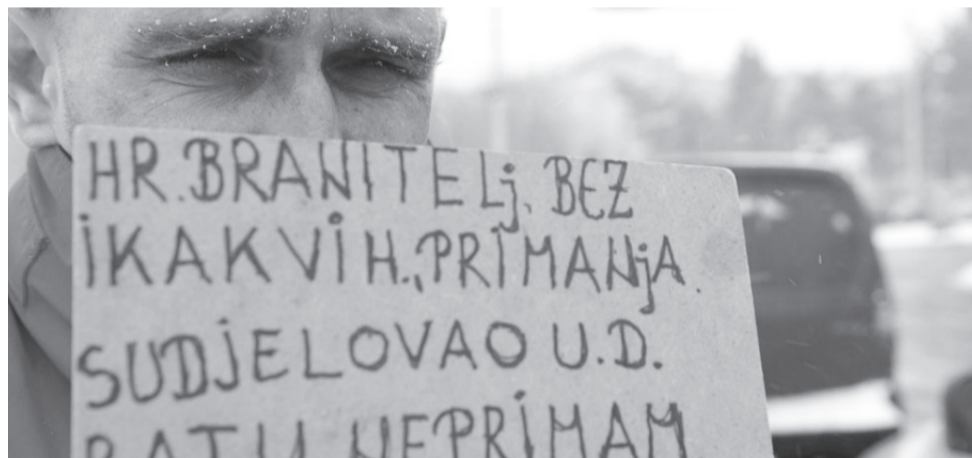 HR.BRANITELj. BEZ
iKAKViH.,PRiMANjA.
SUDjELOVAO U.D.
RATU NEPRiMAM